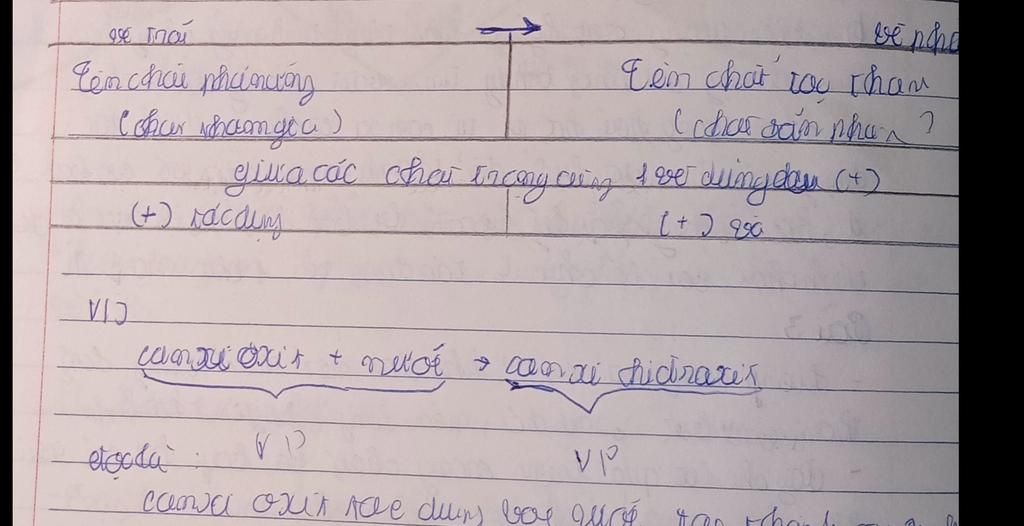 vế trái → vế phả
Tên chất phản ứng Tên chất tạo thàn
(chất tham gia) (chất sản phẩn)
giữa các chất trong cùng 1 vế dùng dấu (+)
(+) tác dụng (+) và
VD
canxi oxit + nướć → canxi hiđraxit
VP VP
đọc là :
canxi oxit tác dụng với nướć tạo thành